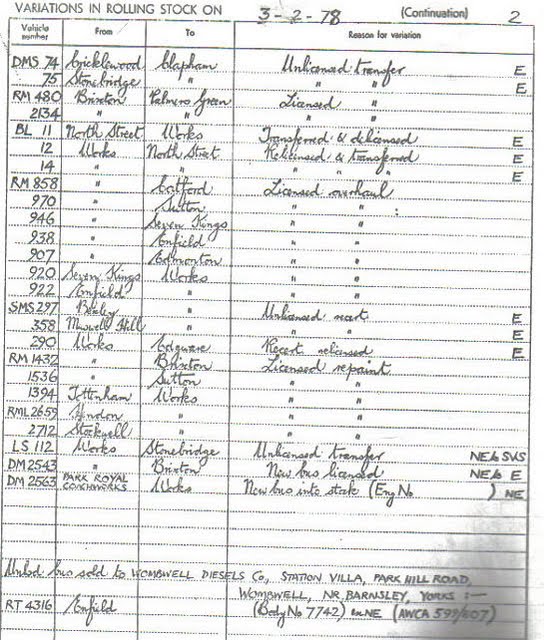 VARIATIONS IN ROLLING STOCK ON 3-2-78 (Continuation) 2
Vehicle number From To Reason for variation
DMS 74 Cricklewood Clapham Unlicensed transfer E
75 Stonebridge " " " E
RM 480 Brixton Palmers Green Licensed "
2134 " " " "
BL 11 North Street Works Transferred & delicensed E
12 Works North Street Relicensed & transferred E
14 " " " " " E
RM 858 " Catford Licensed overhaul
970 " Sutton " "
946 " Seven Kings " "
938 " Enfield " "
907 " Edmonton " "
920 Seven Kings Works " "
922 Enfield " " "
SMS 297 Bexley " Unlicensed recert E
358 Muswell Hill " " " E
290 Works Edgware Recert relicensed E
RM 1432 " Brixton Licensed repaint
1536 " Sutton " "
1394 Tottenham Works " "
RML 2659 Hendon " " "
2712 Stockwell " " "
LS 112 Works Stonebridge Unlicensed transfer NE to SVS
DM 2543 " Brixton New bus licensed NE to E
DM 2563 PARK ROYAL COACHWORKS Works New bus into stock (Eng No ) NE
Unlsd bus sold to WOMBWELL DIESELS Co., STATION VILLA, PARK HILL ROAD,
WOMBWELL, NR. BARNSLEY, YORKS :—
RT 4316 Enfield (Body No 7742) in NE (AWCA 599/807)